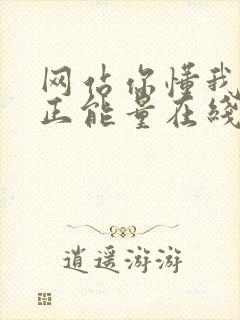 网站你懂我
正能量在线
逍遥游游